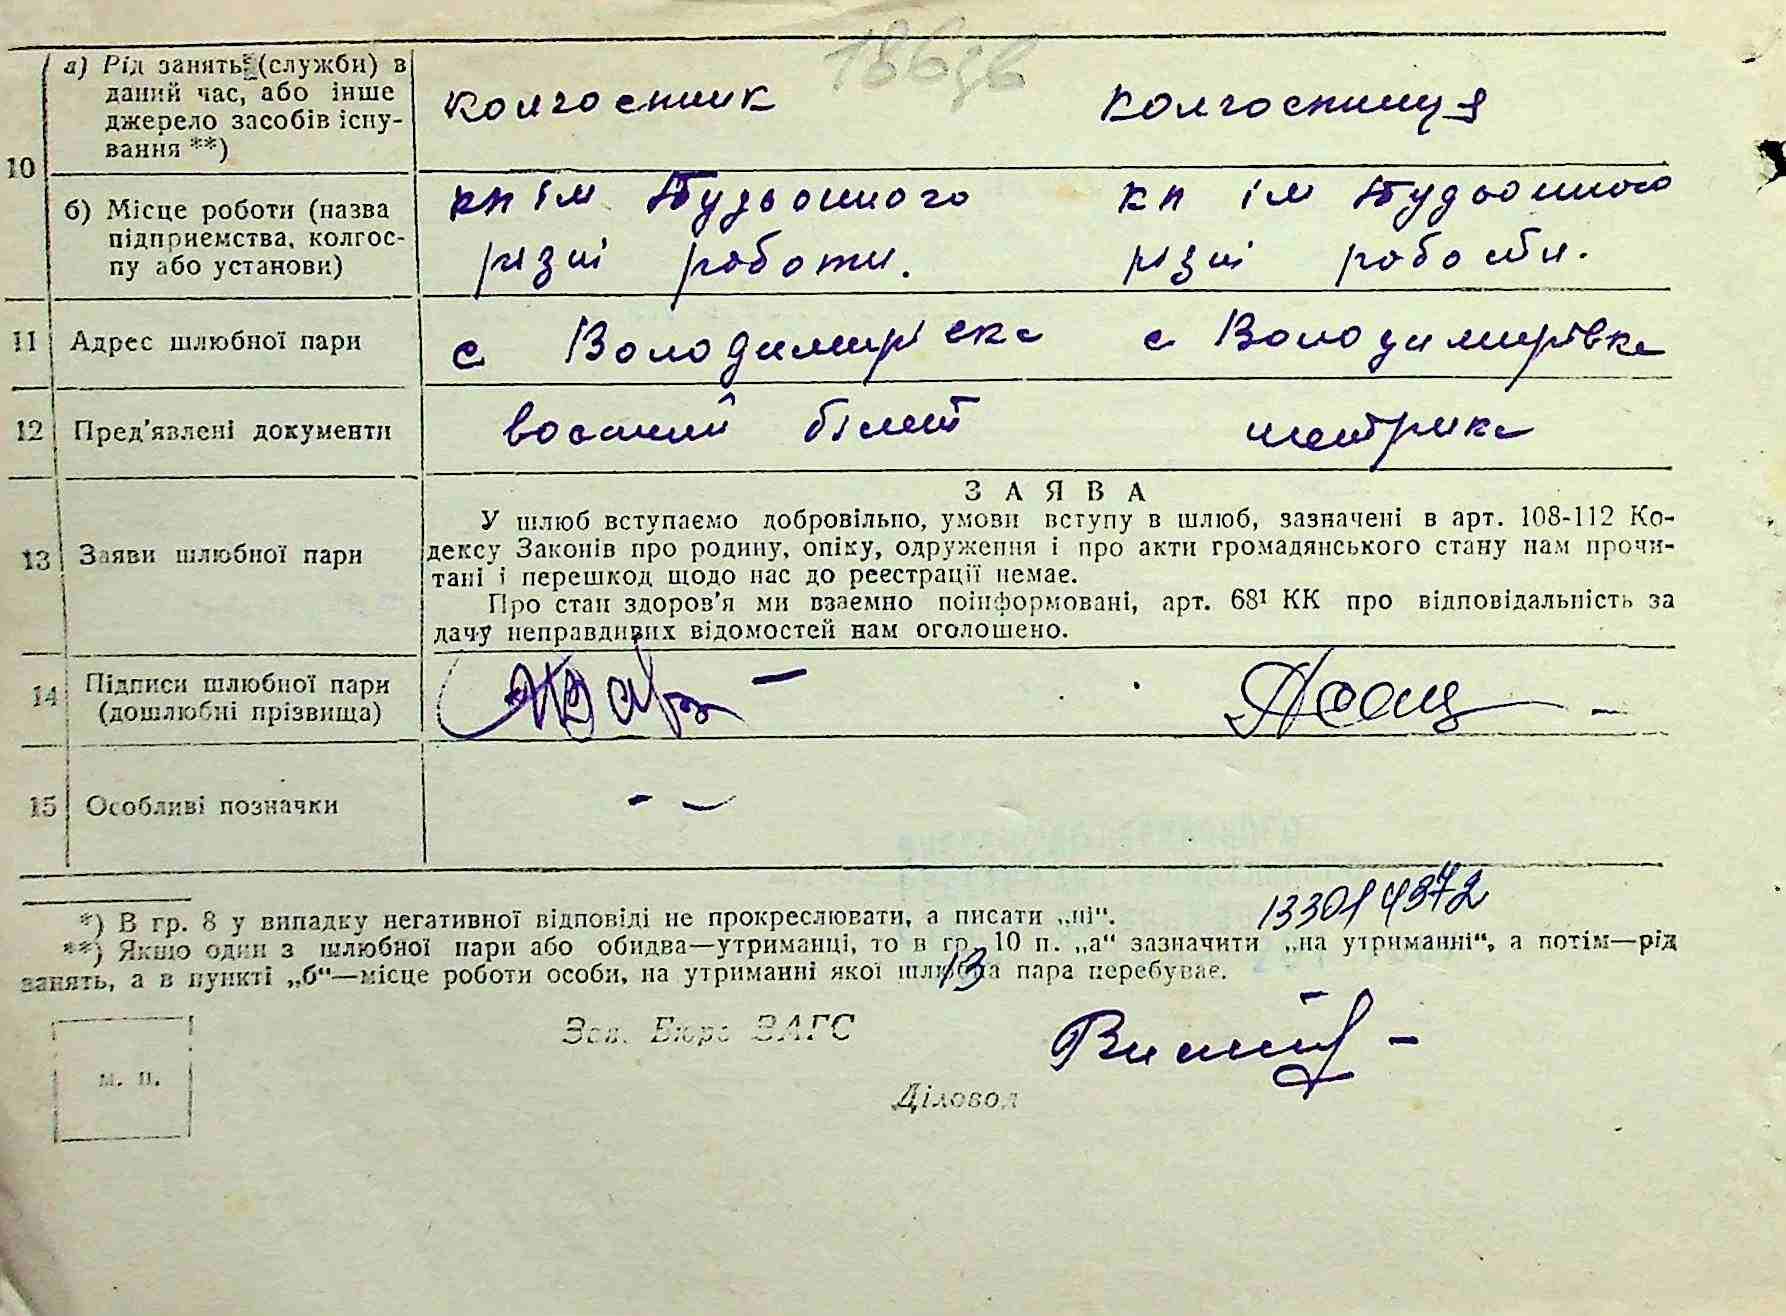 186зв
10 а) Рід занять (службы) в даний час, або інше джерело засобів існування **) колгоспник колгоспниця
б) Місце роботи (назва підприємства, колгоспу або установи) кп ім Будьонного кп ім Будьонного
різні роботи. різні роботи.
11 Адрес шлюбної пари с Володимирівка с Володимирівка
12 Пред'явлені документи воєнний білет метрика
13 Заяви шлюбної пари
ЗАЯВА
У шлюб вступаємо добровільно, умови вступу в шлюб, зазначені в арт. 108-112 Ко-
дексу Законів про родину, опіку, одруження і про акти громадянського стану нам прочи-
тані і перешкод щодо нас до реєстрації немає.
Про стан здоров'я ми взаємно поінформовані, арт. 68¹ КК про відповідальність за
дачу неправдивих відомостей нам оголошено.
14 Підписи шлюбної пари
(дошлюбні прізвища)
15 Особливі позначки - -
133014372
*) В гр. 8 у випадку негативної відповіді не прокреслювати, а писати „ні“.
**) Якщо один з шлюбної пари або обидва—утриманці, то в гр. 10 п. „а“ зазначити „на утриманні“, а потім—рід
занять, а в пункті „б“—місце роботи особи, на утриманні якої шлюбна пара перебуває.
13
Зав. Бюро ЗАГС
м. п.
Діловод